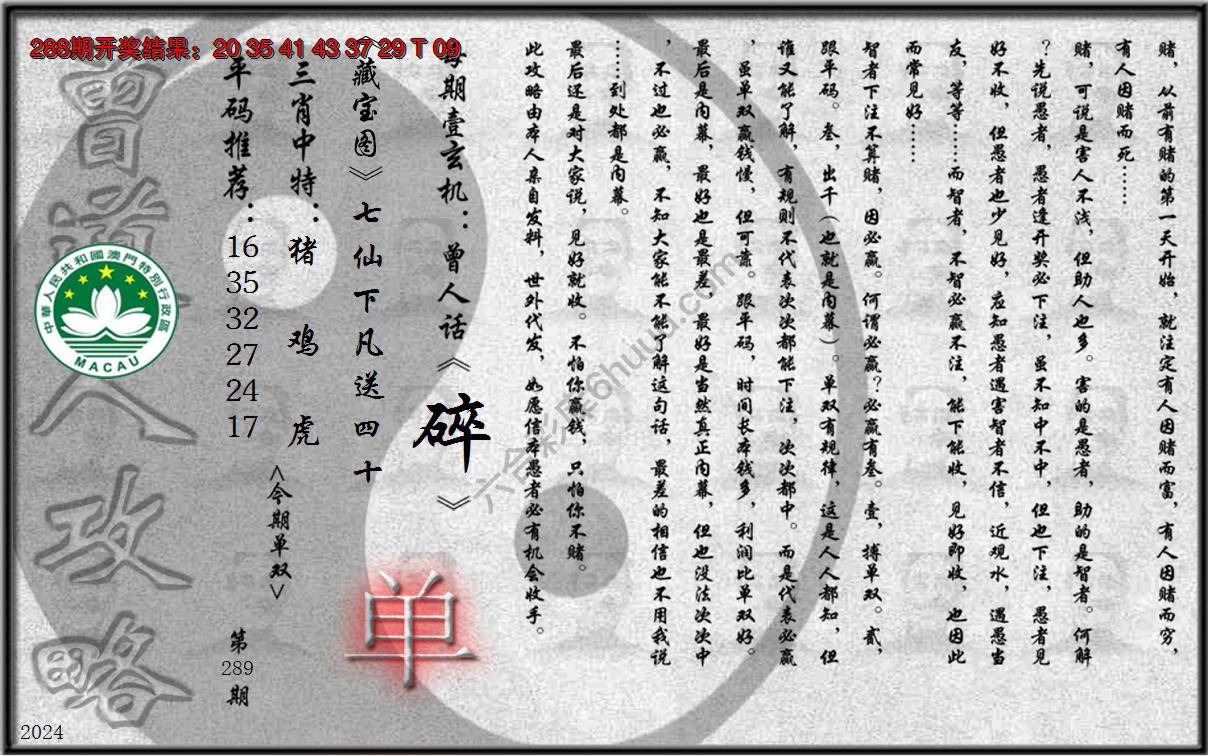 赌，从前有赌的第一天开始，就注定有人因赌而富，有人因赌而穷，
有人因赌而死……
赌，可说是害人不浅，但助人也多。害的是愚者，助的是智者。何解
？先说愚者，愚者逢开奖必下注，虽不知中不中，但也下注，愚者见
好不收，但愚者也少见好，应知愚者遇害智者不信，近观水，遇愚当
友，等等……而智者，不智必赢不注，能下能收，见好即收，也因此
而常见好……
智者下注不算赌，因必赢。何谓必赢？必赢有叁。壹，搏单双。贰，
跟平码。叁，出千（也就是内幕）。单双有规律，这是人人都知，但
谁又能了解，有规则不代表次次都能下注，次次都中。而是代表必赢
，虽单双赢钱慢，但可靠。跟平码，时间长本钱多，利润比单双好。
最后是内幕，最好也是最差，最好是当然真正内幕，但也没法次次中
，不过也必赢，不知大家能不能了解这句话，最差的相信也不用我说
……到处都是内幕。
最后还是对大家说，见好就收。不怕你赢钱，只怕你不赌。
此攻略由本人亲自发料，世外代发，如愿信本愚者必有机会收手。
每期壹玄机：曾人话《碎》
《藏宝图》七仙下凡送四十
单
三肖中特：猪 鸡 虎
<今期单双>
平码推荐：16 35 32 27 24 17
第289期
288期开奖结果：20 35 41 43 37 29 T 09
曾道人攻略
中華人民共和國澳門特別行政區
MACAU
六合彩库6huuu.com
2024